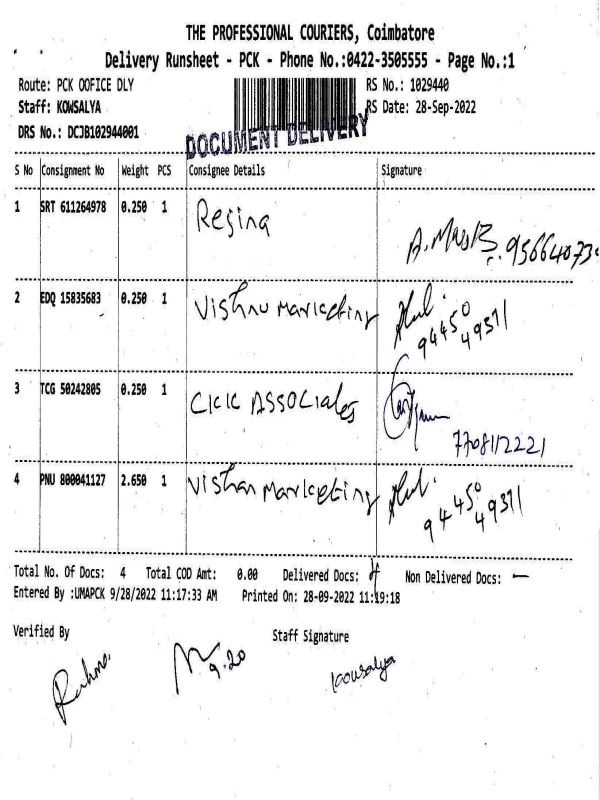 THE PROFESSIONAL COURIERS, Coimbatore
Delivery Runsheet - PCK - Phone No.:0422-3505555 - Page No.:1
Route: PCK OOFICE DLY RS No.: 1029440
Staff: KOWSALYA RS Date: 28-Sep-2022
DRS No.: DCJB102944001
DOCUMENT DELIVERY
S No Consignment No Weight PCS Consignee Details Signature
1 SRT 611264978 0.250 1 Regina
2 EDQ 15835683 0.250 1 Vishnu Marketing 94450
49371
3 TCG 50242805 0.250 1 CKK ASSOCiates
7708112221
4 PNU 800041127 2.650 1 Vishnu Marketing 94450
49371
Total No. Of Docs: 4 Total COD Amt: 0.00 Delivered Docs: 4 Non Delivered Docs: —
Entered By :UMAPCK 9/28/2022 11:17:33 AM Printed On: 28-09-2022 11:19:18
Verified By Staff Signature
9.20
kowsalya